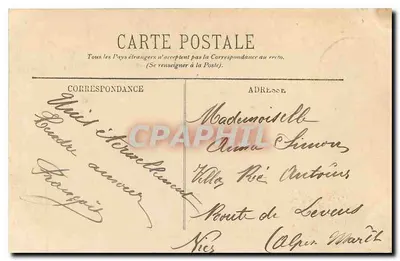 CARTE POSTALE
Tous les Pays étrangers n'acceptent pas la Correspondance au recto.
(Se renseigner à la Poste).
CORRESPONDANCE
ADRESSE
Unis éternellement
Tendre amour
François
Mademoiselle
Anna Simon
Villa Ré Antoine
Route de Levens
Nice (Alpes Marit
CPAPHIL